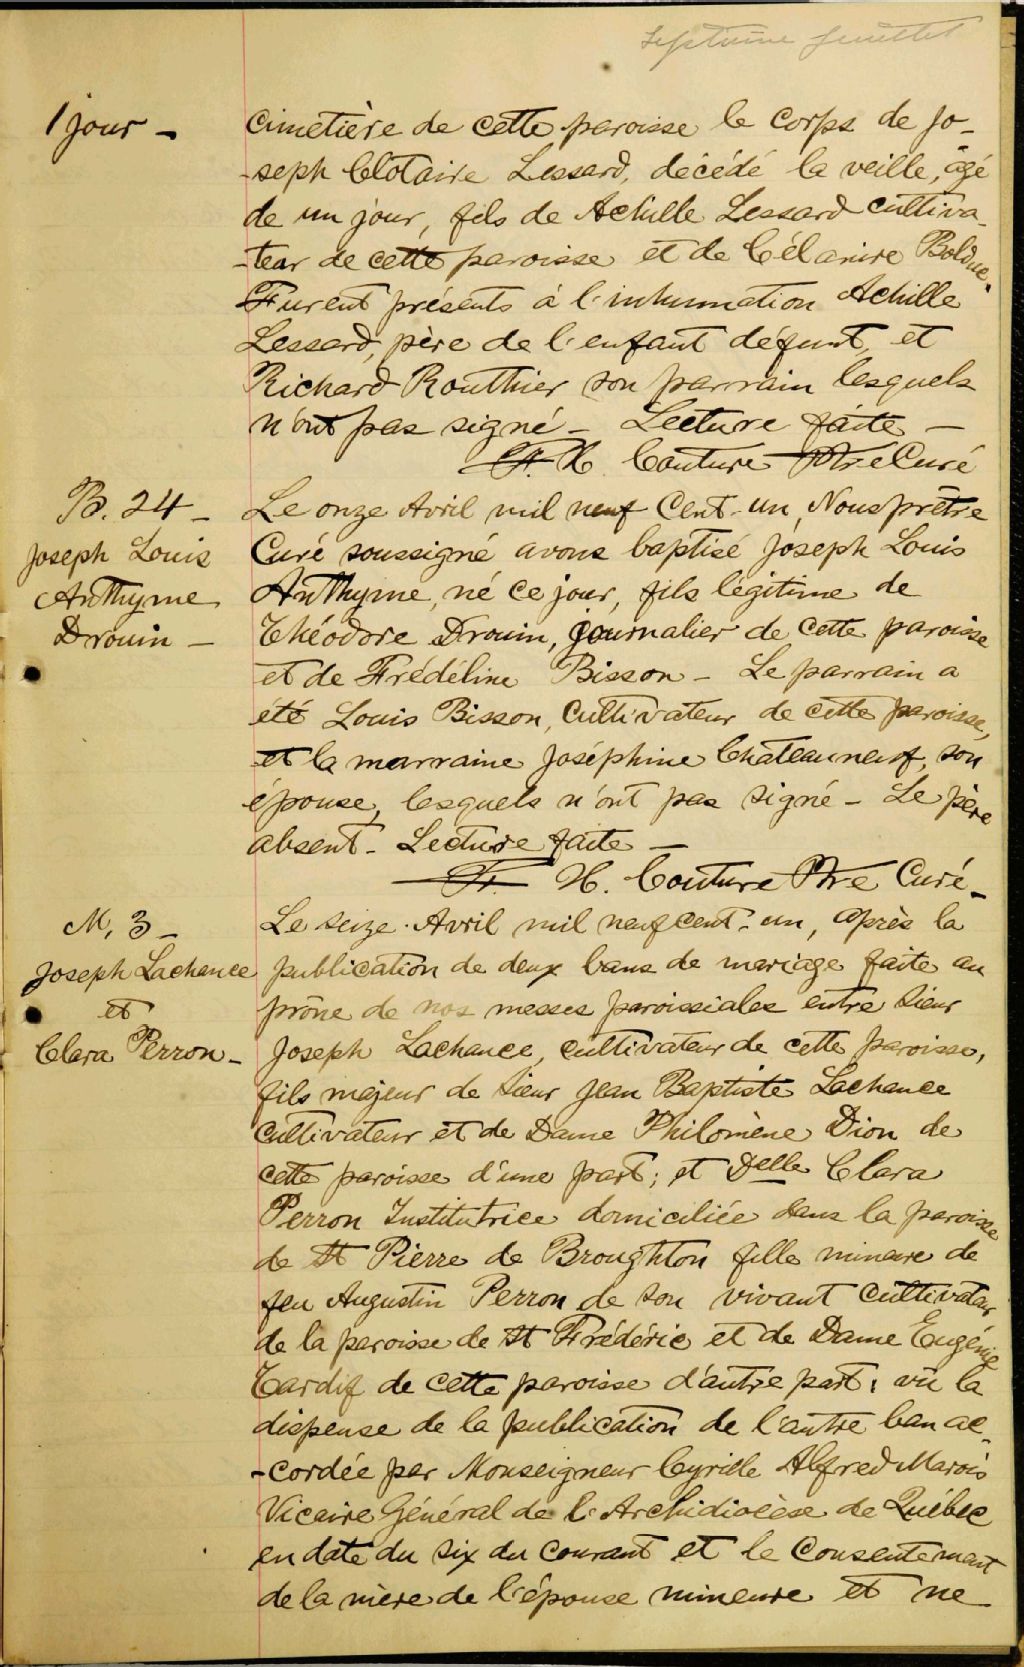 Septième feuillet
1 jour -
cimetière de cette paroisse le corps de Jo-
-seph Clotaire Lessard, décédé la veille, âgé
de un jour, fils de Achille Lessard cultiva-
-teur de cette paroisse et de Célanire Bolduc.
Furent présents à l'inhumation Achille
Lessard, père de l'enfant défunt, et
Richard Routhier son parrain lesquels
n'ont pas signé - Lecture faite -
F. X. Couture Ptre Curé
B. 24 -
Joseph Louis
Anthyme
Drouin -
Le onze Avril mil neuf Cent-un, Nous prêtre
Curé soussigné avons baptisé Joseph Louis
Anthyme, né ce jour, fils légitime de
Théodore Drouin, journalier de cette paroisse
et de Frédéline Bisson - Le parrain a
été Louis Bisson, cultivateur de cette paroisse,
et la marraine Joséphine Chateauneuf, son
épouse, lesquels n'ont pas signé - Le père
absent - Lecture faite -
F. X. Couture Ptre Curé -
M. 3 -
Joseph Lachance
et
Clara Perron -
Le seize Avril mil neuf cent-un, après la
publication de deux bans de mariage faite au
prône de nos messes paroissiales entre Sieur
Joseph Lachance, cultivateur de cette paroisse,
fils majeur de Sieur Jean Baptiste Lachance
cultivateur et de Dame Philomène Dion de
cette paroisse d'une part; et Delle Clara
Perron Institutrice domiciliée dans la paroisse
de St Pierre de Broughton fille mineure de
feu Augustin Perron de son vivant cultivateur
de la paroisse de St Frédéric et de Dame Eugénie
Tardif de cette paroisse d'autre part; vu la
dispense de la publication de l'autre ban ac-
-cordée par Monseigneur Cyrille Alfred Marois
Vicaire Général de l'Archidiocèse de Québec
en date du six du courant et le consentement
de la mère de l'épouse mineure et ne